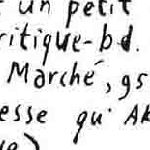 un petit
ritique-bd.
Marché, 95
esse qu'AK